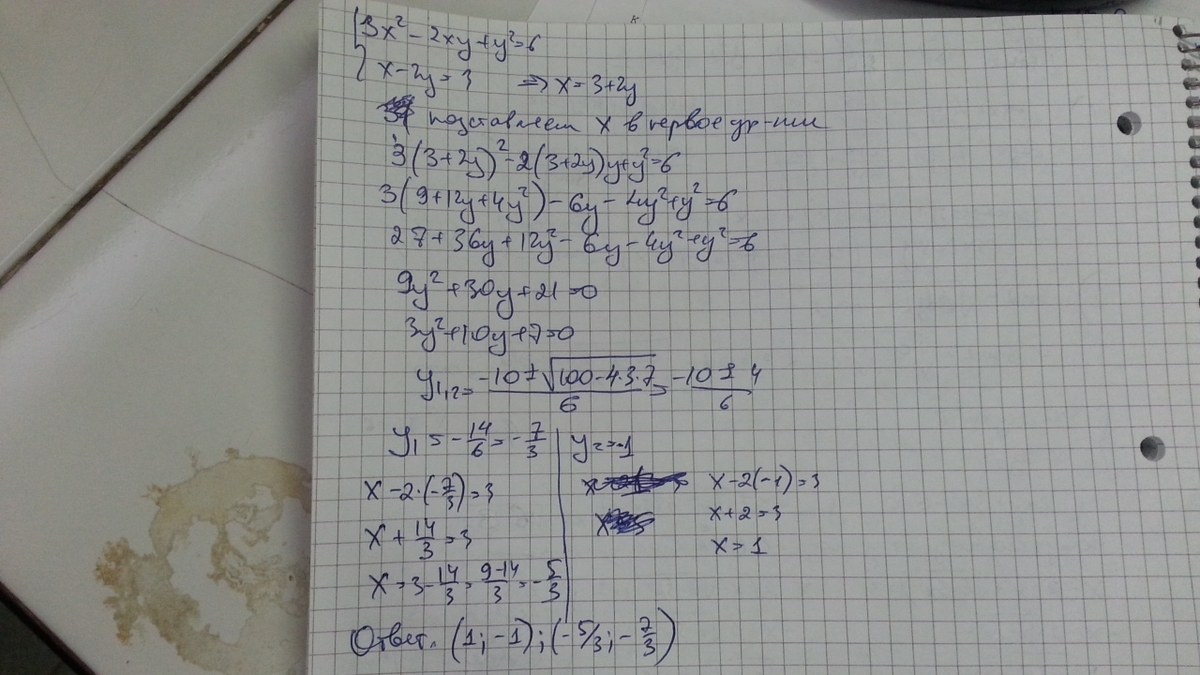 {3x² - 2xy + y² = 6
x - 2y = 3 => x = 3+2y
подставляем x в первое ур-ние
3(3+2y)² - 2(3+2y)y + y² = 6
3(9+12y+4y²) - 6y - 4y² + y² = 6
27 + 36y + 12y² - 6y - 4y² + y² = 6
9y² + 30y + 21 = 0
3y² + 10y + 7 = 0
y₁,₂ = (-10 ± √(100-4·3·7))/6 = (-10 ± 4)/6
y₁ = -14/6 = -7/3
x - 2·(-7/3) = 3
x + 14/3 = 3
x = 3 - 14/3 = (9-14)/3 = -5/3
y₂ = -1
x - 2(-1) = 3
x + 2 = 3
x = 1
Ответ. (1; -1); (-5/3; -7/3)